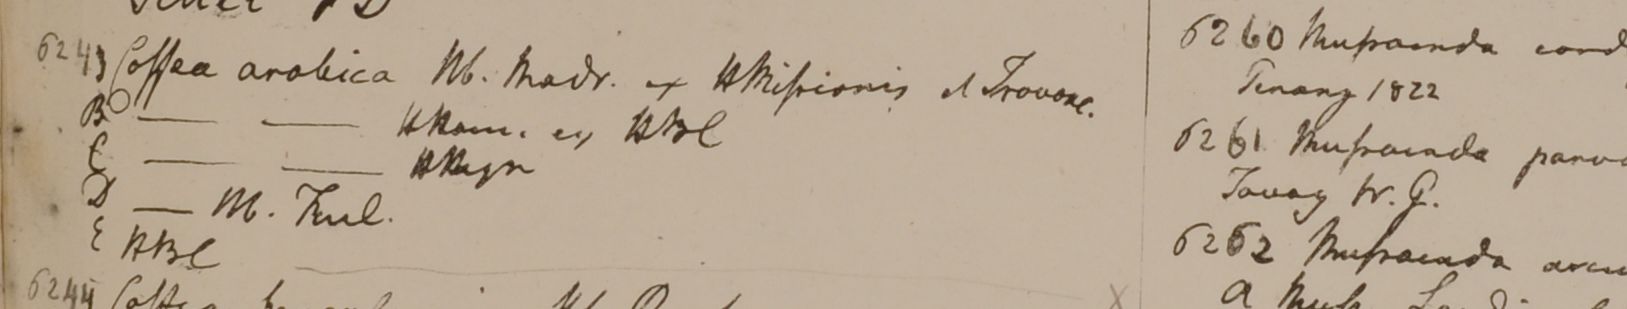 6243 Coffea arabica Hb. Madr. ex HMissionis et Travanc.
B — — HHam. ex HBC
C — — HHeyn
D — Hb. Finl.
E HBC
6244 Coffea
6260 Mussaenda cord
Penang 1822
6261 Mussaenda parv
Tavoy W. G.
6262 Mussaenda
a Muss.